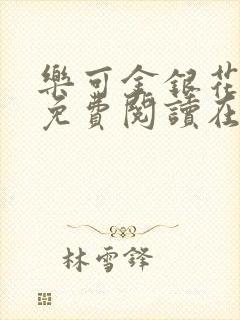 樂可金銀花
免費閱讀在
林雪鋒